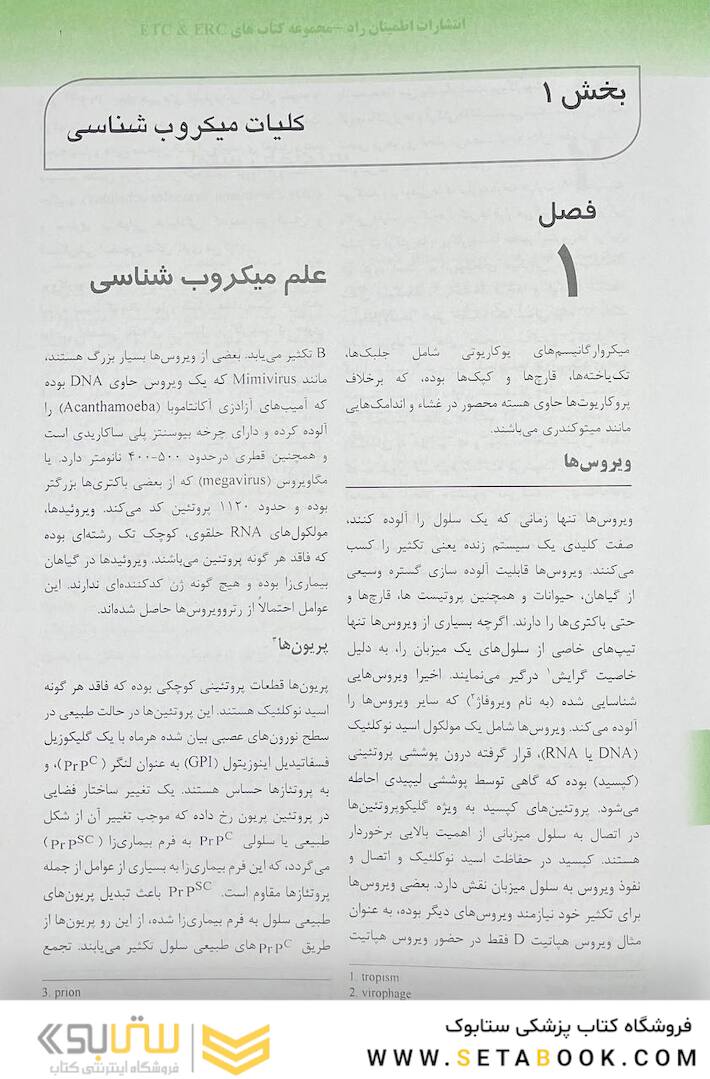 انتشارات اطمینان راد – مجموعه کتاب های ETC & ERC
۱
بخش ۱
کلیات میکروب شناسی
فصل
۱
علم میکروب شناسی
میکروارگانیسم‌های یوکاریوتی شامل جلبک‌ها،
تک‌یاخته‌ها، قارچ‌ها و کپک‌ها بوده، که برخلاف
پروکاریوت‌ها حاوی هسته محصور در غشاء و اندامک‌هایی
مانند میتوکندری می‌باشند.
ویروس‌ها
ویروس‌ها تنها زمانی که یک سلول را آلوده کنند،
صفت کلیدی یک سیستم زنده یعنی تکثیر را کسب
می‌کنند. ویروس‌ها قابلیت آلوده سازی گستره وسیعی
از گیاهان، حیوانات و همچنین پروتیست ها، قارچ‌ها و
حتی باکتری‌ها را دارند. اگرچه بسیاری از ویروس‌ها تنها
تیپ‌های خاصی از سلول‌های یک میزبان را، به دلیل
خاصیت گرایش۱ درگیر می‌نمایند. اخیرا ویروس‌هایی
شناسایی شده (به نام ویروفاژ۲) که سایر ویروس‌ها را
آلوده می‌کند. ویروس‌ها شامل یک مولکول اسید نوکلئیک
(DNA یا RNA)، قرار گرفته درون پوششی پروتئینی
(کپسید) بوده که گاهی توسط پوششی لیپیدی احاطه
می‌شود. پروتئین‌های کپسید به ویژه گلیکوپروتئین‌ها
در اتصال به سلول میزبانی از اهمیت بالایی برخوردار
هستند. کپسید در حفاظت اسید نوکلئیک و اتصال و
نفوذ ویروس به سلول میزبان نقش دارد. بعضی ویروس‌ها
برای تکثیر خود نیازمند ویروس‌های دیگر بوده، به عنوان
مثال ویروس هپاتیت D فقط در حضور ویروس هپاتیت
1. tropism
2. virophage
B تکثیر می‌یابد. بعضی از ویروس‌ها بسیار بزرگ هستند،
مانند Mimivirus که یک ویروس حاوی DNA بوده
که آمیب‌های آزادزی آکانتاموبا (Acanthamoeba) را
آلوده کرده و دارای چرخه بیوسنتز پلی ساکاریدی است
و همچنین قطری درحدود ۵۰۰-۴۰۰ نانومتر دارد. یا
مگاویروس (megavirus) که از بعضی باکتری‌ها بزرگتر
بوده و حدود ۱۱۲۰ پروتئین کد می‌کند. ویروئیدها،
مولکول‌های RNA حلقوی، کوچک تک رشته‌ای بوده
که فاقد هر گونه پروتئین می‌باشند. ویروئیدها در گیاهان
بیماری‌زا بوده و هیچ گونه ژن کدکننده‌ای ندارند. این
عوامل احتمالاً از رتروویروس‌ها حاصل شده‌اند.
پریون‌ها۳
پریون‌ها قطعات پروتئینی کوچکی بوده که فاقد هر گونه
اسید نوکلئیک هستند. این پروتئین‌ها در حالت طبیعی در
سطح نورون‌های عصبی بیان شده هرماه با یک گلیکوزیل
فسفاتیدیل اینوزیتول (GPI) به عنوان لنگر (PrPC)، و
به پروتئازها حساس هستند. یک تغییر ساختار فضایی
در پروتئین پریون رخ داده که موجب تغییر آن از شکل
طبیعی یا سلولی PrPC به فرم بیماری‌زا (PrPSC)
می‌گردد، که این فرم بیماری‌زا به بسیاری از عوامل از جمله
پروتئازها مقاوم است. PrPSC باعث تبدیل پریون‌های
طبیعی سلول به فرم بیماری‌زا شده، از این رو پریون‌ها از
طریق PrPC های طبیعی سلول تکثیر می‌یابند. تجمع
3. prion
فروشگاه کتاب پزشکی ستابوک
WWW.SETABOOK.COM
ستابوک
فروشگاه اینترنتی کتاب